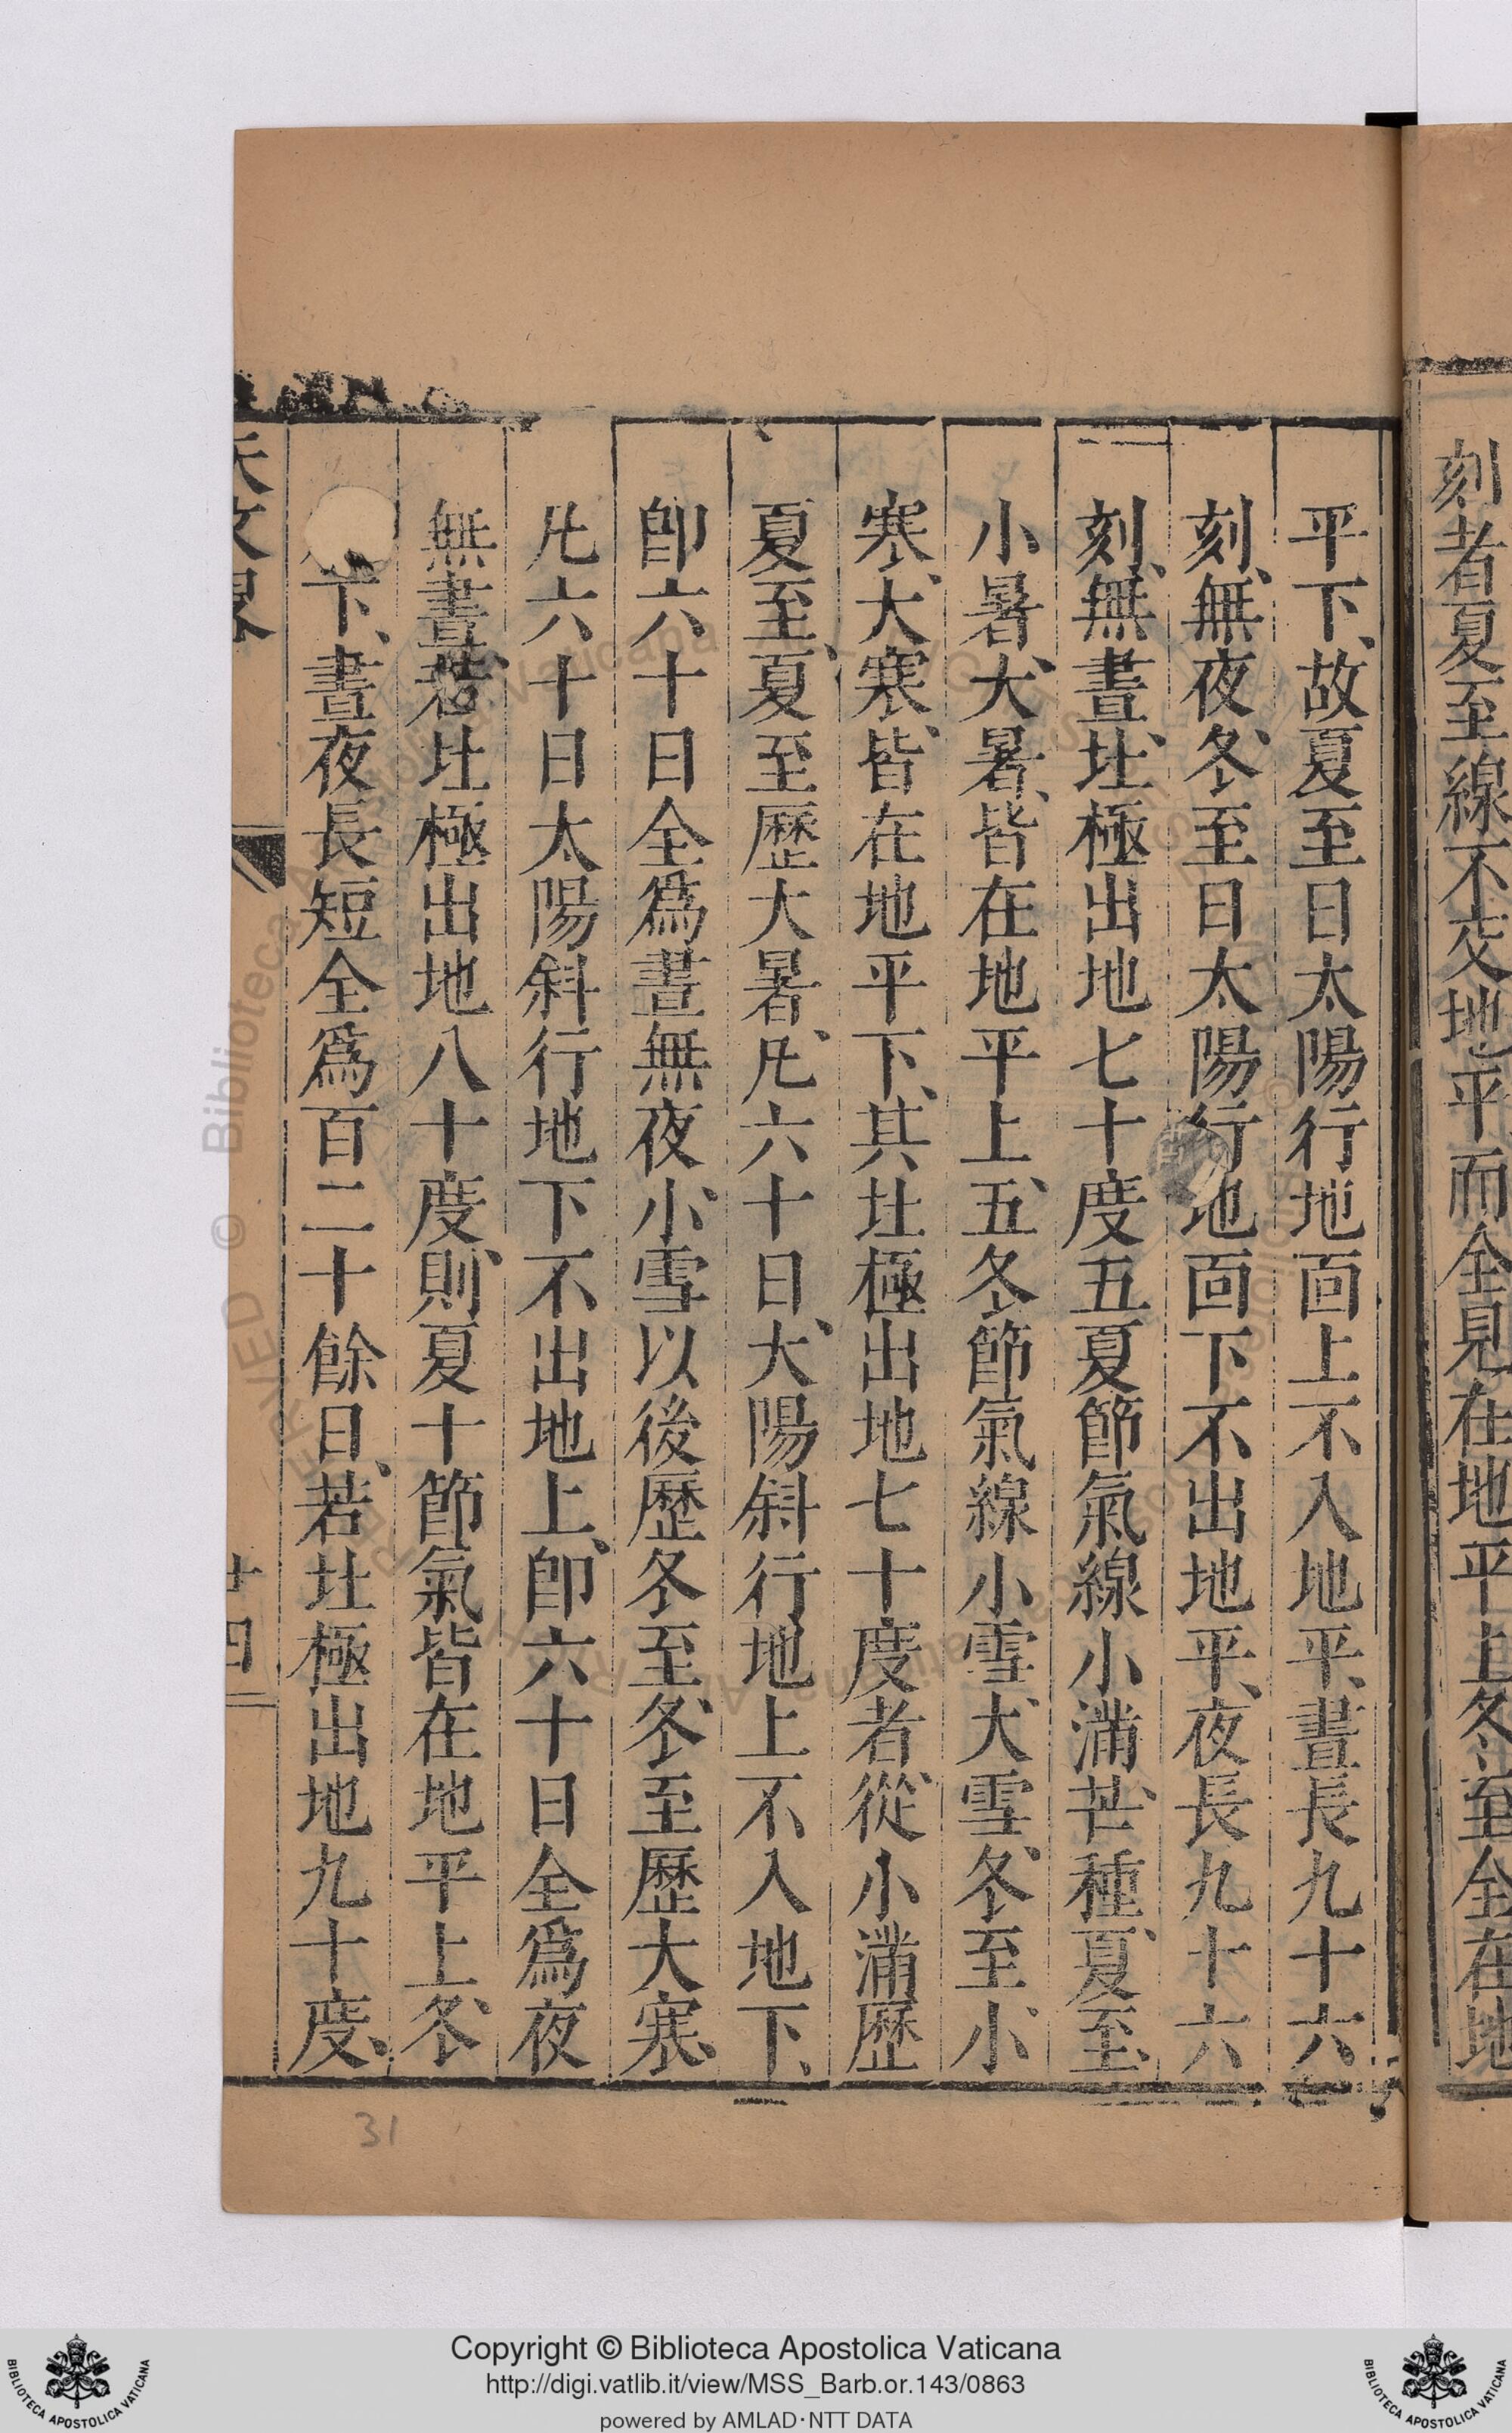 刻者夏至線不交地平而全見在地平上冬至全在地
平下、故夏至日太陽行地面上不入地平、晝長九十六
刻、無夜、冬至日太陽行地面下不出地平、夜長九十六
刻、無晝、北極出地七十度、五夏節氣線小滿、芒種、夏至、
小暑、大暑、皆在地平上、五冬節氣線小雪、大雪、冬至、小
寒、大寒、皆在地平下、其北極出地七十度者、從小滿歷
夏至、夏至歷大暑、凡六十日、大陽斜行地上不入地下、
卽六十日全爲晝無夜、小雪以後歷冬至、冬至歷大寒、
凡六十日太陽斜行地下不出地上、卽六十日全爲夜
無晝、若北極出地八十度、則夏十節氣皆在地平上、冬
下、晝夜長短全爲百二十餘日、若北極出地九十度、
天文畧
十四
31
© Biblioteca Apostolica Vaticana
Copyright © Biblioteca Apostolica Vaticana
http://digi.vatlib.it/view/MSS_Barb.or.143/0863
powered by AMLAD·NTT DATA
BIBLIOTECA APOSTOLICA VATICANA
BIBLIOTECA APOSTOLICA VATICANA